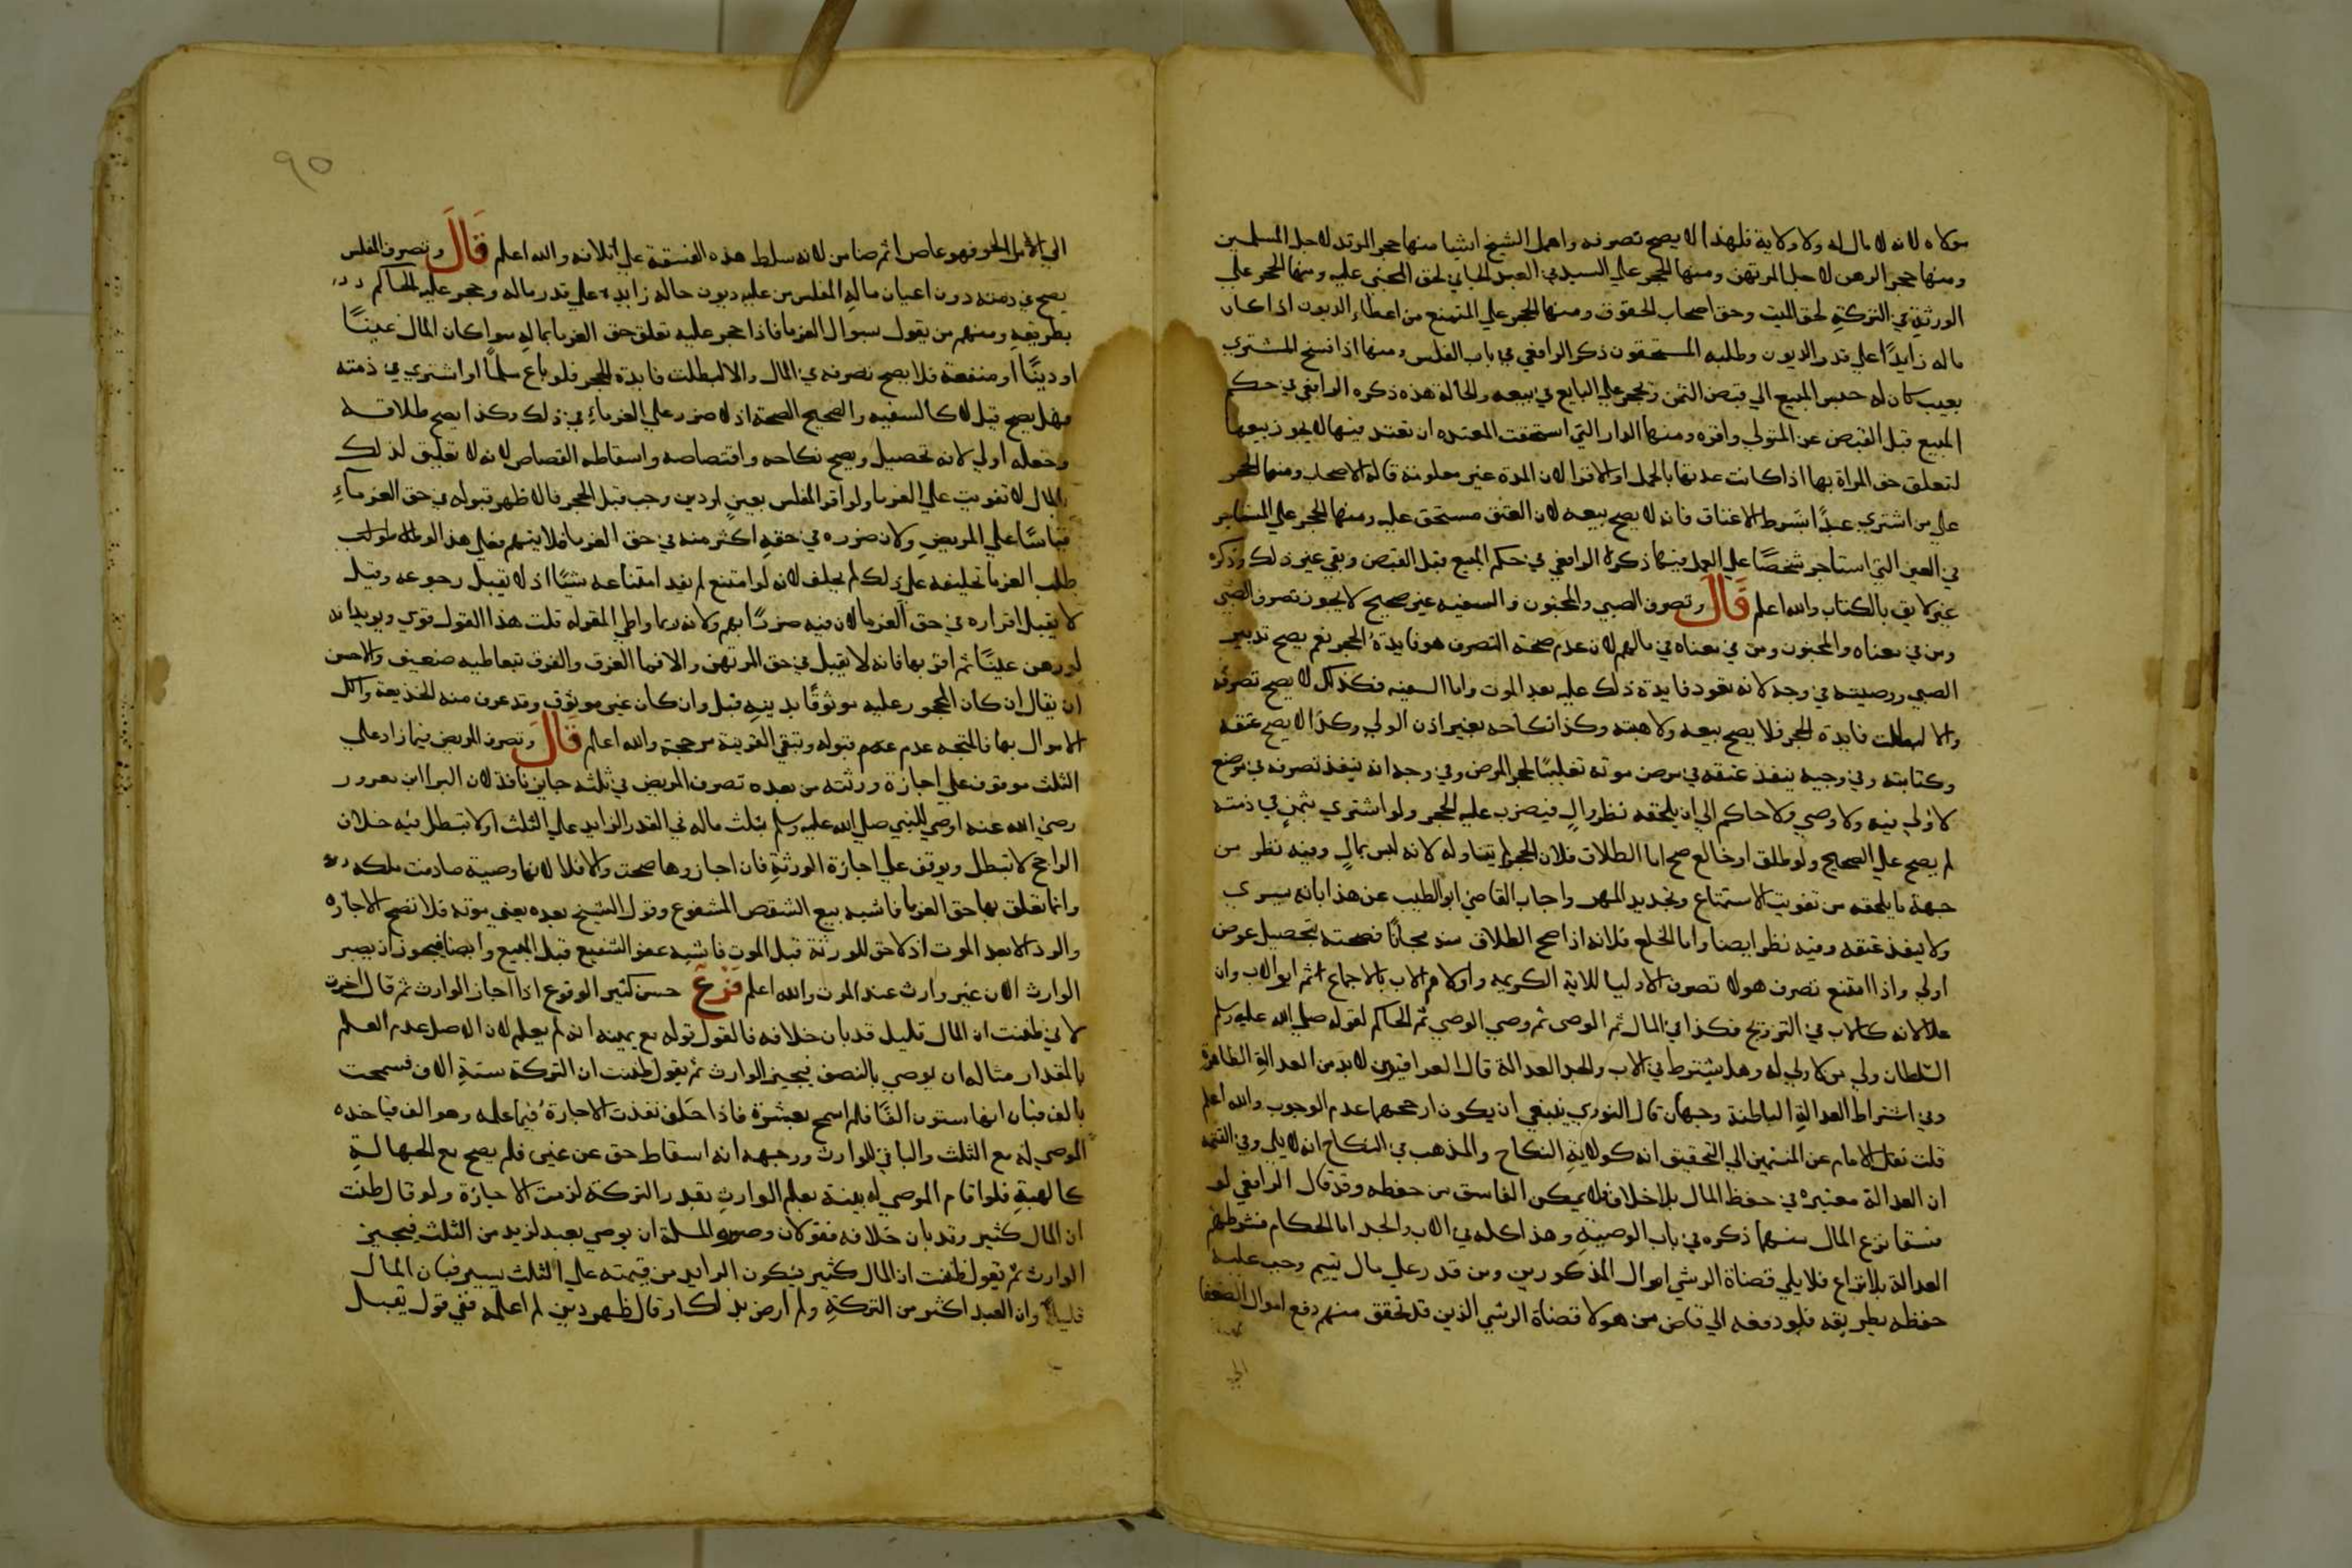 مولاه لانه لا مال له ولا ولاية فلهذا لا يصح تصرفه واهمل الشيخ اشيا منها حجر المرتد لاجل المسلمين
ومنها حجر الرهن لاجل المرتهن ومنها الحجر علي السيد في العبد الجاني لحق المجني عليه ومنها الحجر علي
الورثة في التركة لحق الميت وحق اصحاب الحقوق ومنها الحجر علي الممتنع من اعطاء الديون اذا كان
ماله زايدًا علي قدر الديون وطلبه المستحقون ذكره الرافعي في باب الفلس ومنها اذا فسخ المشتري
بعيب كان له حبس المبيع الي قبض الثمن ويحجر علي البايع في بيعه والحالة هذه ذكره الرافعي في حكم
المبيع قبل القبض عن المتولي واقره ومنها الدار التي استحقت المعتده ان تعتد فيها لا يجوز بيعها
لتعلق حق المراة بها اذا كانت عدتها بالحمل او الاقرا لان المدة غير معلومة قاله الاصحاب ومنها الحجر
علي من اشتري عبدًا بشرط الاعتاق فانه لا يصح بيعه لان العتق مستحق عليه ومنها الحجر علي المستاجر
في العين التي استاجر شخصًا علي العمل فيها ذكره الرافعي في حكم المبيع قبل القبض وبقي غير ذلك وذكره
غير لايق بالكتاب والله اعلم قَالَ وتصرف الصبي والمجنون والسفيه غير صحيح لا يجوز تصرف الصبي
ومن في معناه والمجنون ومن في معناه في مالهم لان عدم صحة التصرف هو فايدة الحجر نعم يصح تدبير
الصبي ووصيته في وجه لانه تعود فايدة ذلك عليه بعد الموت واما السفيه فكذلك لا يصح تصرفه
والا لبطلت فايدة الحجر فلا يصح بيعه ولا هبته وكذا نكاحه بغير اذن الولي وكذا لا يصح عتقه
وكتابته وفي وجيه ينفذ عتقه في مرض موته تغليبًا لحجر المرض وفي وجه انه ينفذ تصرفه في موضع
لا ولي فيه ولا وصي ولا حاكم الي ان يلحقه نظر والٍ فيضرب عليه الحجر ولو اشتري بثمن في ذمته
لم يصح علي الصحيح ولو طلق او خالع صح اما الطلاق فلان الحجر لم يتناوله لانه ليس بمالٍ وفيه نظر من
جهة ما يلحقه من تفويت الاستمتاع وتجديد المهر واجاب القاضي ابو الطيب عن هذا بانه يسري
ولا ينفذ عتقه وفيه نظر ايضا واما الخلع فلانه اذا صح الطلاق منه مجانًا فصحته بتحصيل عوض
اولي واذا امتنع تصرف هولا تصرف الاوليا للاية الكريمه واولاهم الاب بالاجماع ثم ابو الاب وان
علا لانه كالاب في التزويج فكذا في المال ثم الوصي ثم وصي الوصي ثم الحاكم لقوله صلي الله عليه وسلم
السلطان ولي من لا ولي له وهل يشترط في الاب والجد العدالة قال العراقيون لا بد من العدالة الظاهرة
وفي اشتراط العدالة الباطنة وجهان قال النووي ينبغي ان يكون ارجحهما عدم الوجوب والله اعلم
قلت نقل الامام عن المنتمين الي التحقيق انه كولاية النكاح والمذهب في النكاح انه لا يلي وفي التتمه
ان العدالة معتبرة في حفظ المال بلا خلاف فلا يمكن الفاسق من حفظه وقد قال الرافعي لو
فسقا نزع المال منهما ذكره في باب الوصية وهذا كله في الاب والجد اما الحكام فشرطهم
العدالة بلا نزاع فلا يلي قضاة الرشي اموال المذكورين ومن قدر علي مال يتيم وجب عليه
حفظه بطريقه فلو دفعه الي قاض من هولا قضاة الرشي الذين قد تحقق منهم دفع اموال الضعفا
الي
٩٥
الي الامرا الجور فهو عاص اثم ضامن لانه سلط هذه الفسقة علي اتلافه والله اعلم قَالَ وتصرف المفلس
يصح في ذمته دون اعيان ماله المفلس من عليه ديون حاله زايده علي قدر ماله وحجر عليه الحاكم
بطريقه ومنهم من يقول بسوال الغرما فاذا حجر عليه تعلق حق الغرما بماله سوا كان المال عينًا
او دينًا او منفعة فلا يصح تصرفه في المال والا لبطلت فايدة الحجر فلو باع سلمًا او اشتري في ذمته
فهل يصح قيل لا كالسفيه والصحيح الصحة اذ لا ضرر علي الغرماء في ذلك وكذا يصح طلاقه
وخلعه اولي لانه تحصيل ويصح نكاحه واقتصاصه واسقاطه القصاص لانه لا تعلق لذلك
بالمال لا تفويت علي الغرما ولو اقر المفلس بعين او دين وجب قبل الحجر فالاظهر قبوله في حق الغرماء
قياسًا علي المريض ولان ضرره في حقه اكثر منه في حق الغرما فلا يتهم فعلي هذا لو
طلب الغرما تحليفه علي ذلك لم يحلف لانه لو امتنع لم يفد امتناعه شيًا اذ لا يقبل رجوعه وقيل
لا يقبل اقراره في حق الغرما لان فيه ضررًا بهم ولانه ربما واطي المقر له قلت هذا القول قوي ويويده انه
لو رهن عينًا ثم اقر بها فانه لا يقبل في حق المرتهن والا فما الفرق والفرق بتعاطيه ضعيف والاحسن
ان يقال ان كان المحجور عليه موثوقًا بدينه قبل وان كان غير موثوق وقد عرف منه الخديعة واكل
الاموال بها فالمتجه عدم قبوله وتبقي القرينة مرجحة والله اعلم قَالَ وتصرف المريض فيما زاد علي
الثلث موقوف علي اجازة ورثته من بعده تصرف المريض في ثلثه جايز نافذ لان البرا ابن معرور
رضي الله عنه اوصي للنبي صلي الله عليه وسلم بثلث ماله في القدر الزايد علي الثلث او لا تبطل فيه خلاف
الراجح لا تبطل ويوقف علي اجازة الورثة فان اجازوها صحت والا فلا لانها وصية صادفت ملكه
وانما تعلق بها حق الغرما فاشبه بيع الشقص المشفوع وقول الشيخ بعده يعني موته فلا تصح الاجازه
والرد الا بعد الموت اذ لا حق للورثة قبل الموت فاشبه عفو الشفيع قبل البيع وايضا فيجوز ان يصير
الوارث الان غير وارث عند الموت والله اعلم فَرْع حسن كثير الوقوع اذا اجاز الوارث ثم قال اجزت
لاني ظننت ان المال قليل قد بان خلافه فالقول قوله مع يمينه انه لم يعلم لان الاصل عدم العلم
بالمقدار مثاله ان يوصي بالنصف فيجيز الوارث ثم يقول ظننت ان التركة ستة الاف فسمحت
بالف فبان انها ستون الفًا فلم اسمح بعشرة فاذا حلف نفذت الاجازة فيما علمه وهو الف فياخذه
الموصي له مع الثلث والباقي للوارث ووجهه انه اسقاط حق عن عين فلم يصح مع الجهالة
كالهبة فلو اقام الموصي له بينة بعلم الوارث بقدر التركة لزمت الاجازة ولو قال ظننت
ان المال كثير وقد بان خلافه فقولان وصورة المسلة ان يوصي بعبد لزيد من الثلث فيجيز
الوارث ثم يقول ظننت ان المال كثير فيكون الزايد من قيمته علي الثلث يسير فبان المال
قليلا وان العبد اكثر من التركة ولم ارض بذلك او قال ظهر دين لم اعلمه ففي قول يقبل